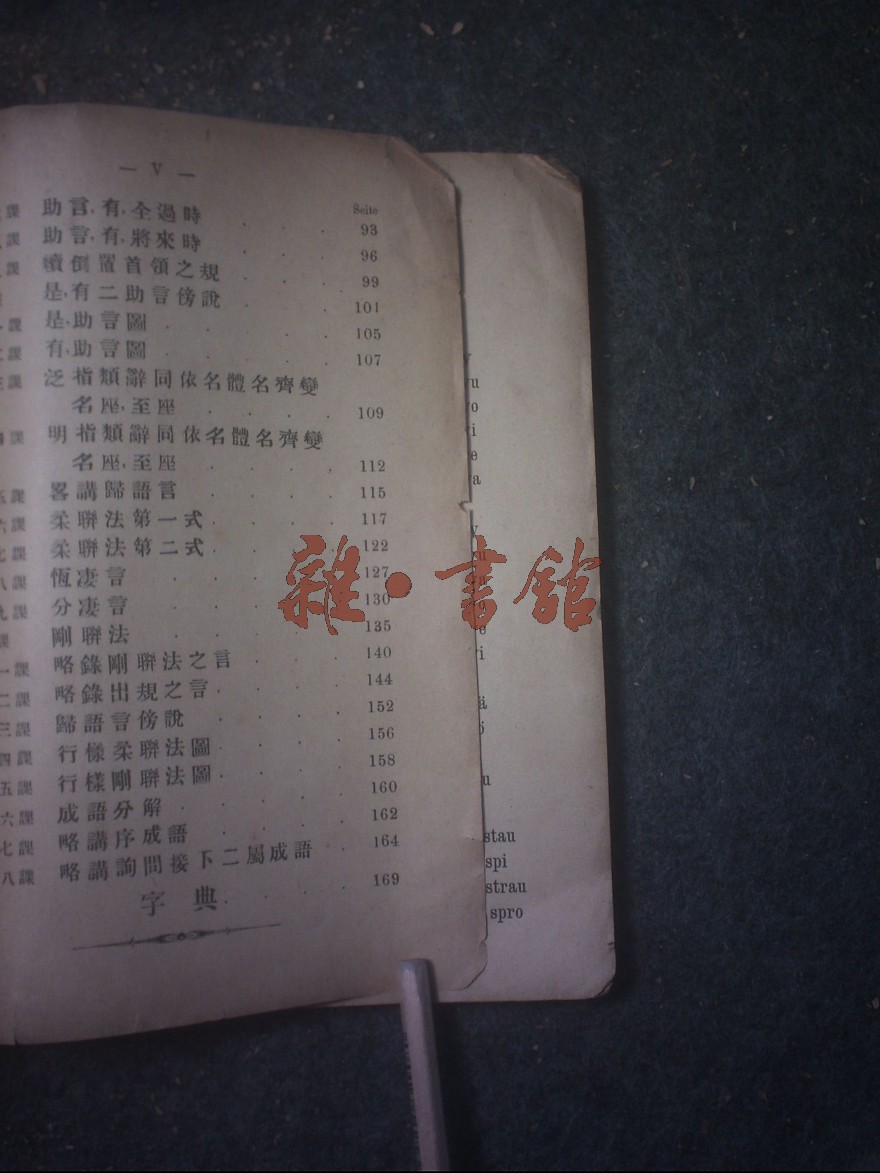 — V —
Seite
課 助言,有,全過時 . . . 93
課 助言,有,將來時 . . . 96
課 續倒置首領之規 . . . 99
是,有二助言傍說 . . . 101
課 是,助言圖 . . . . 105
課 有,助言圖 . . . . 107
三課 泛指類辭同依名體名齊變
名座,至座 . . . . 109
四課 明指類辭同依名體名齊變
名座,至座 . . . . 112
五課 畧講歸語言 . . . . 115
六課 柔聯法第一式 . . . 117
七課 柔聯法第二式 . . . 122
八課 恆凄言 . . . . . 127
九課 分凄言 . . . . . 130
課 剛聯法 . . . . . 135
一課 略錄剛聯法之言 . . . 140
二課 略錄出規之言 . . . . 144
三課 歸語言傍說 . . . . 152
四課 行樣柔聯法圖 . . . 156
五課 行樣剛聯法圖 . . . 158
六課 成語分解 . . . . 160
七課 略講序成語 . . . . 162
八課 略講詢問接下二屬成語 . . 164
字典 . . . . 169
stau
spi
strau
spro
雜·書館